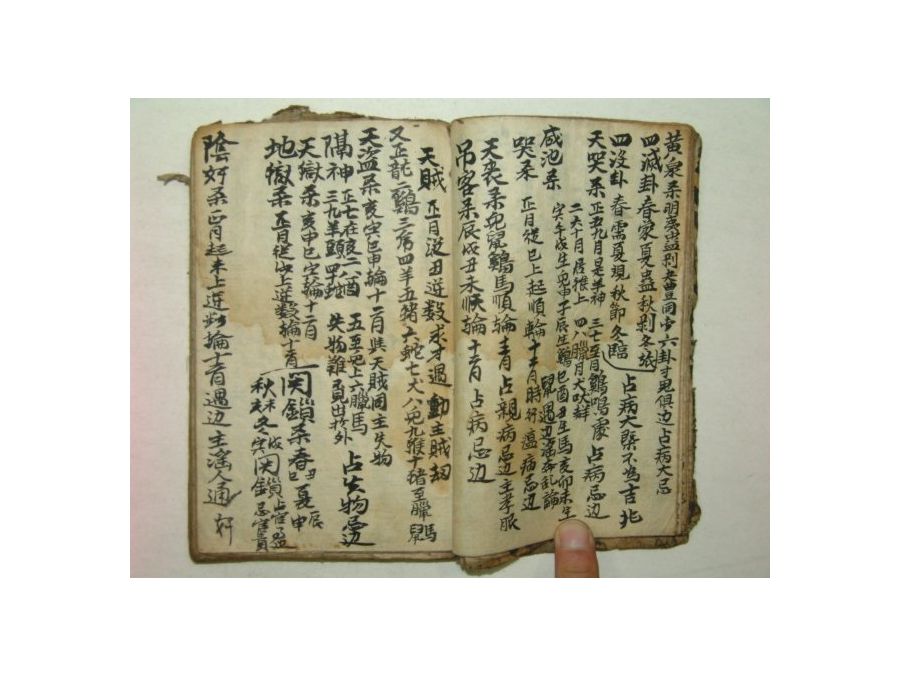 黄泉杀明夷蛊剥豊同步六卦才鬼俱边占病大忌
四滅卦春家夏蛊秋剥冬旅
四没卦春需夏观秋節冬臨 占病大槩不為吉北
天哭杀正五九月是羊神 三七至月鷄鳴處占病忌边
二六十月居维上 四八臘月犬吠辩
咸池杀 寅午戌生兔申子辰生鷄巳酉丑生馬亥卯未生鼠遇边淫奔乱論
哭杀 正月從巳上起順輪十二月時行瘟病忌边
天丧杀兔鼠鷄馬順輪十二月占親病忌边主孝服
吊客杀辰戌丑未順輪十二月占病忌边
天賊 正月從丑逆数求才遇動主賊劫
又正龍二鷄三虎四羊五猪六蛇七犬八兔九猴十猪至臘馬鼠
天盗杀亥寅巳申輪十二月與天賊同主失物
隔神 正七在亥二八酉 五至兔上六臘馬 占失物忌边
三九羊頭四十蛇 失物難覓出於外
天獄杀亥申巳寅輪十二月
地獄杀正月從 上逆数輪十二月
関鎖杀春丑巳夏申辰
秋未亥冬寅戌関鎖占官 忌官責
陰奸杀正月起未上逆数輪十二月遇边主淫人通奸